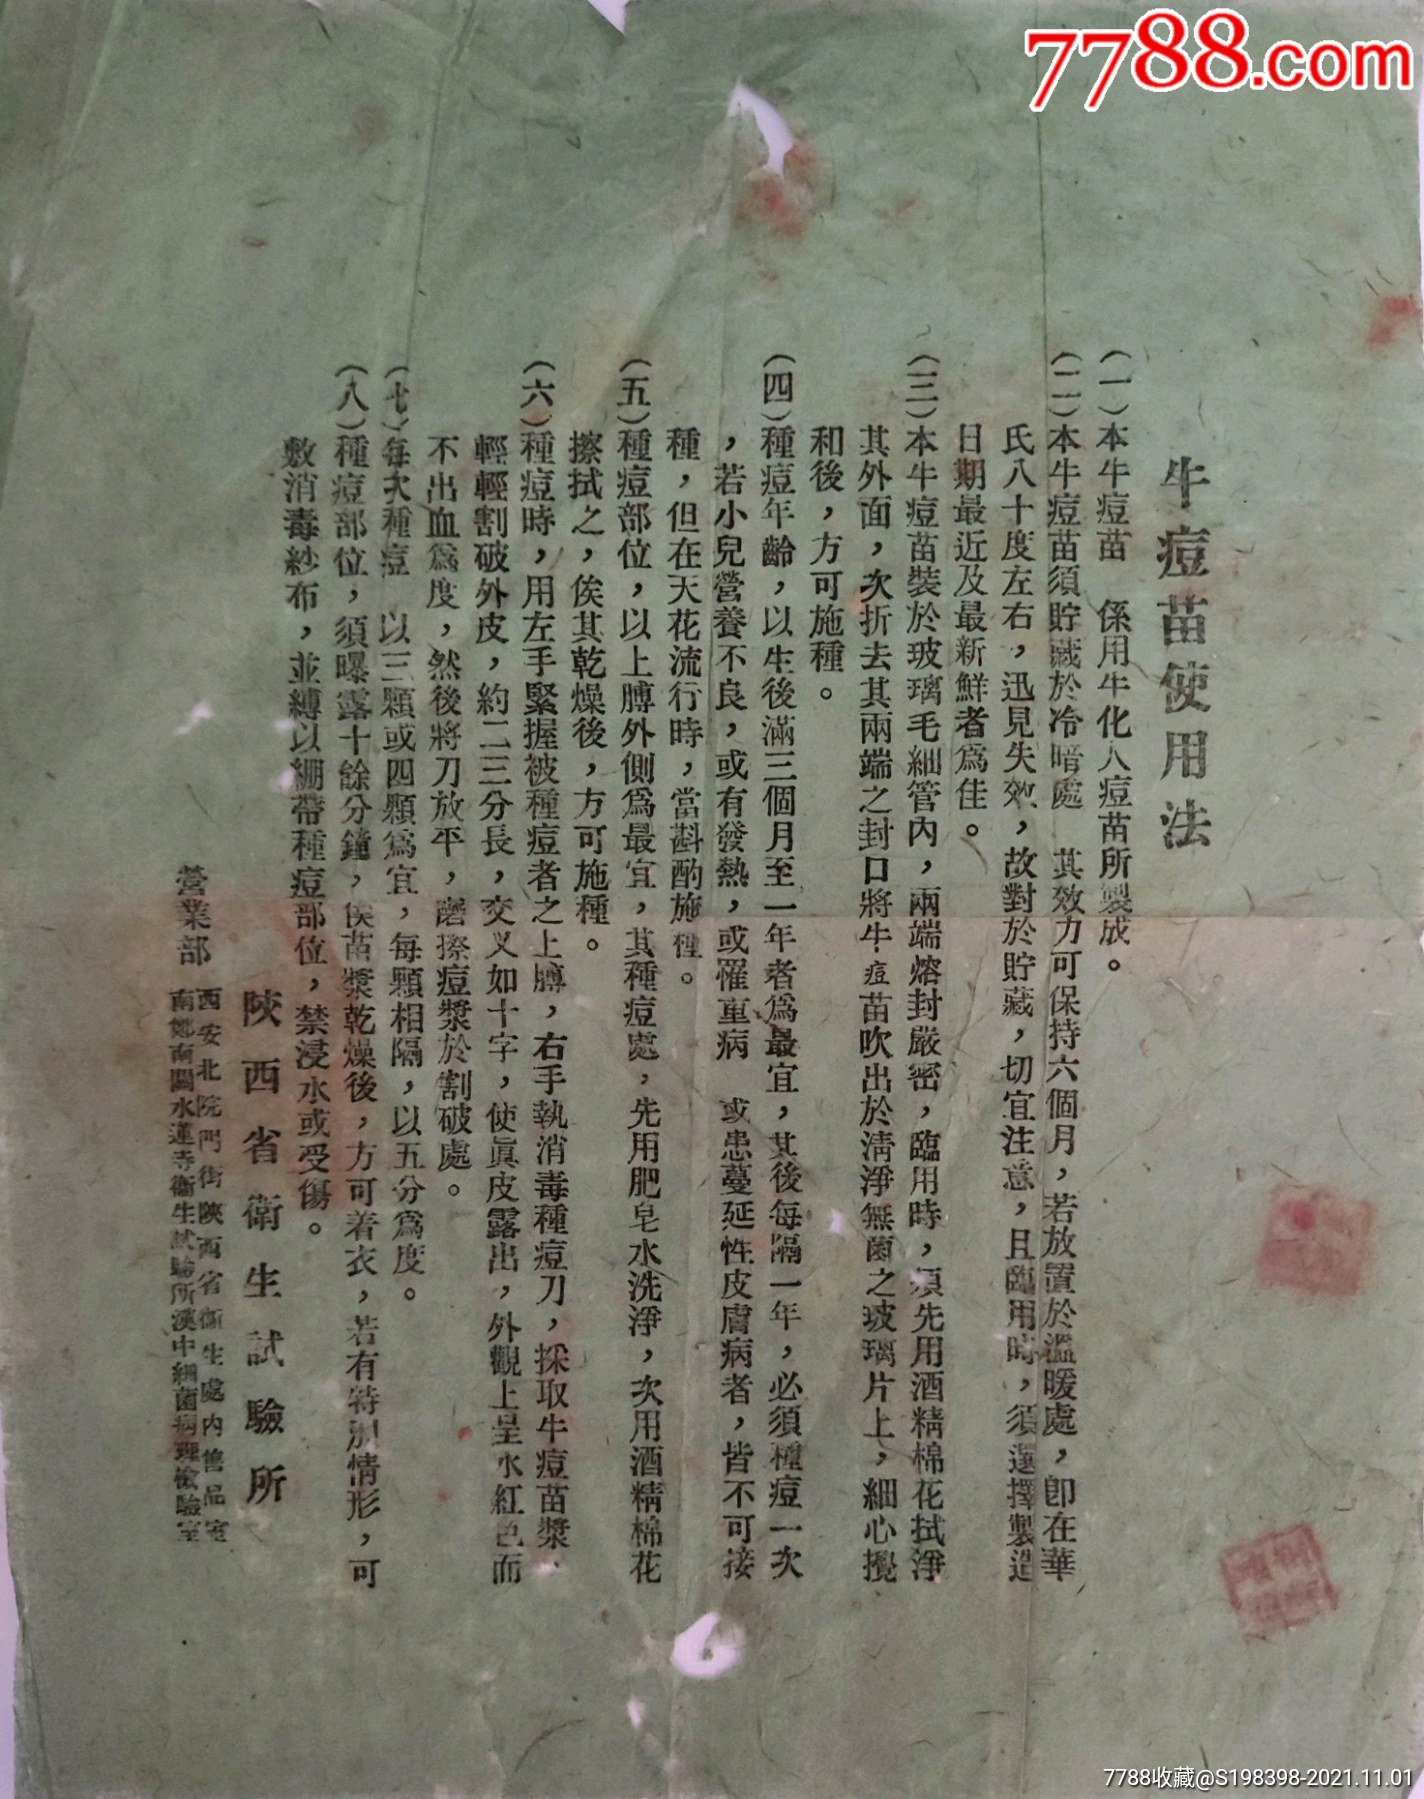 7788.com
牛痘苗使用法
(一)本牛痘苗 係用牛化人痘苗所製成。
(二)本牛痘苗須貯藏於冷暗處 其效力可保持六個月,若放置於溫暖處,卽在華
氏八十度左右,迅見失效,故對於貯藏,切宜注意,且臨用時,須選擇製造
日期最近及最新鮮者爲佳。
(三)本牛痘苗裝於玻璃毛細管內,兩端熔封嚴密,臨用時,須先用酒精棉花拭淨
其外面,次折去其兩端之封口將牛痘苗吹出於清淨無菌之玻璃片上,細心攪
和後,方可施種。
(四)種痘年齡,以生後滿三個月至一年者爲最宜,其後每隔一年,必須種痘一次
,若小兒營養不良,或有發熱,或罹重病 或患蔓延性皮膚病者,皆不可接
種,但在天花流行時,當斟酌施種。
(五)種痘部位,以上膊外側爲最宜,其種痘處,先用肥皂水洗淨,次用酒精棉花
擦拭之,俟其乾燥後,方可施種。
(六)種痘時,用左手緊握被種痘者之上膊,右手執消毒種痘刀,採取牛痘苗漿,
輕輕割破外皮,約二三分長,交叉如十字,使眞皮露出,外觀上呈水紅色而
不出血爲度,然後將刀放平,磨擦痘漿於割破處。
(七)每次種痘 以三顆或四顆爲宜,每顆相隔,以五分爲度。
(八)種痘部位,須曝露十餘分鐘,俟苗漿乾燥後,方可着衣,若有特別情形,可
敷消毒紗布,並縛以綳帶種痘部位,禁浸水或受傷。
陝西省衛生試驗所
營業部
西安北院門街陝西省衛生處內售品室
南鄭南關水蓮寺衛生試驗所漢中細菌病理檢驗室
7788收藏@S198398-2021.11.01